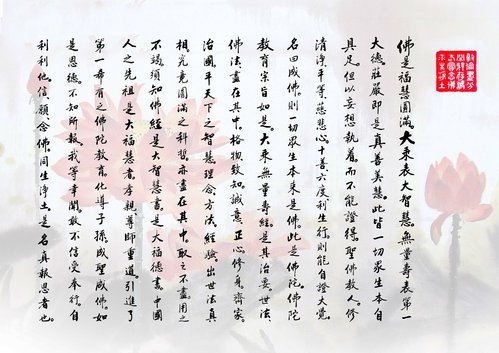 佛是福慧圓滿。大乘表大智慧。無量壽表第一
大德莊嚴即是真善美慧。此皆一切眾生本自
具足。但以妄想執着。而不能證得。聖佛教人。修
清淨平等慈悲心。十善六度利生行。則能自證大覺
名曰成佛。則一切眾生本來是佛。此是佛陀。佛陀
教育宗旨如是。大乘無量壽經。是其治世法。
佛法盡在其中。格物致知。誠意。正心。修身。齊家。
治國。平天下之智慧。理念。方法。經驗。出世法。真
相。究竟圓滿之科哲。亦盡在其中。取之不盡。用之
不竭。須知佛經是大智慧書。是大福德書。中國
人之先祖是大福慧者。孝親尊師重道。引進了
第一希有之佛陀教育。化導子孫。成聖成佛。如
是恩德。不知所報。我等幸聞。敢不信受奉行。自
利利他。信。願。念佛。同生淨土。是名真報恩者也。